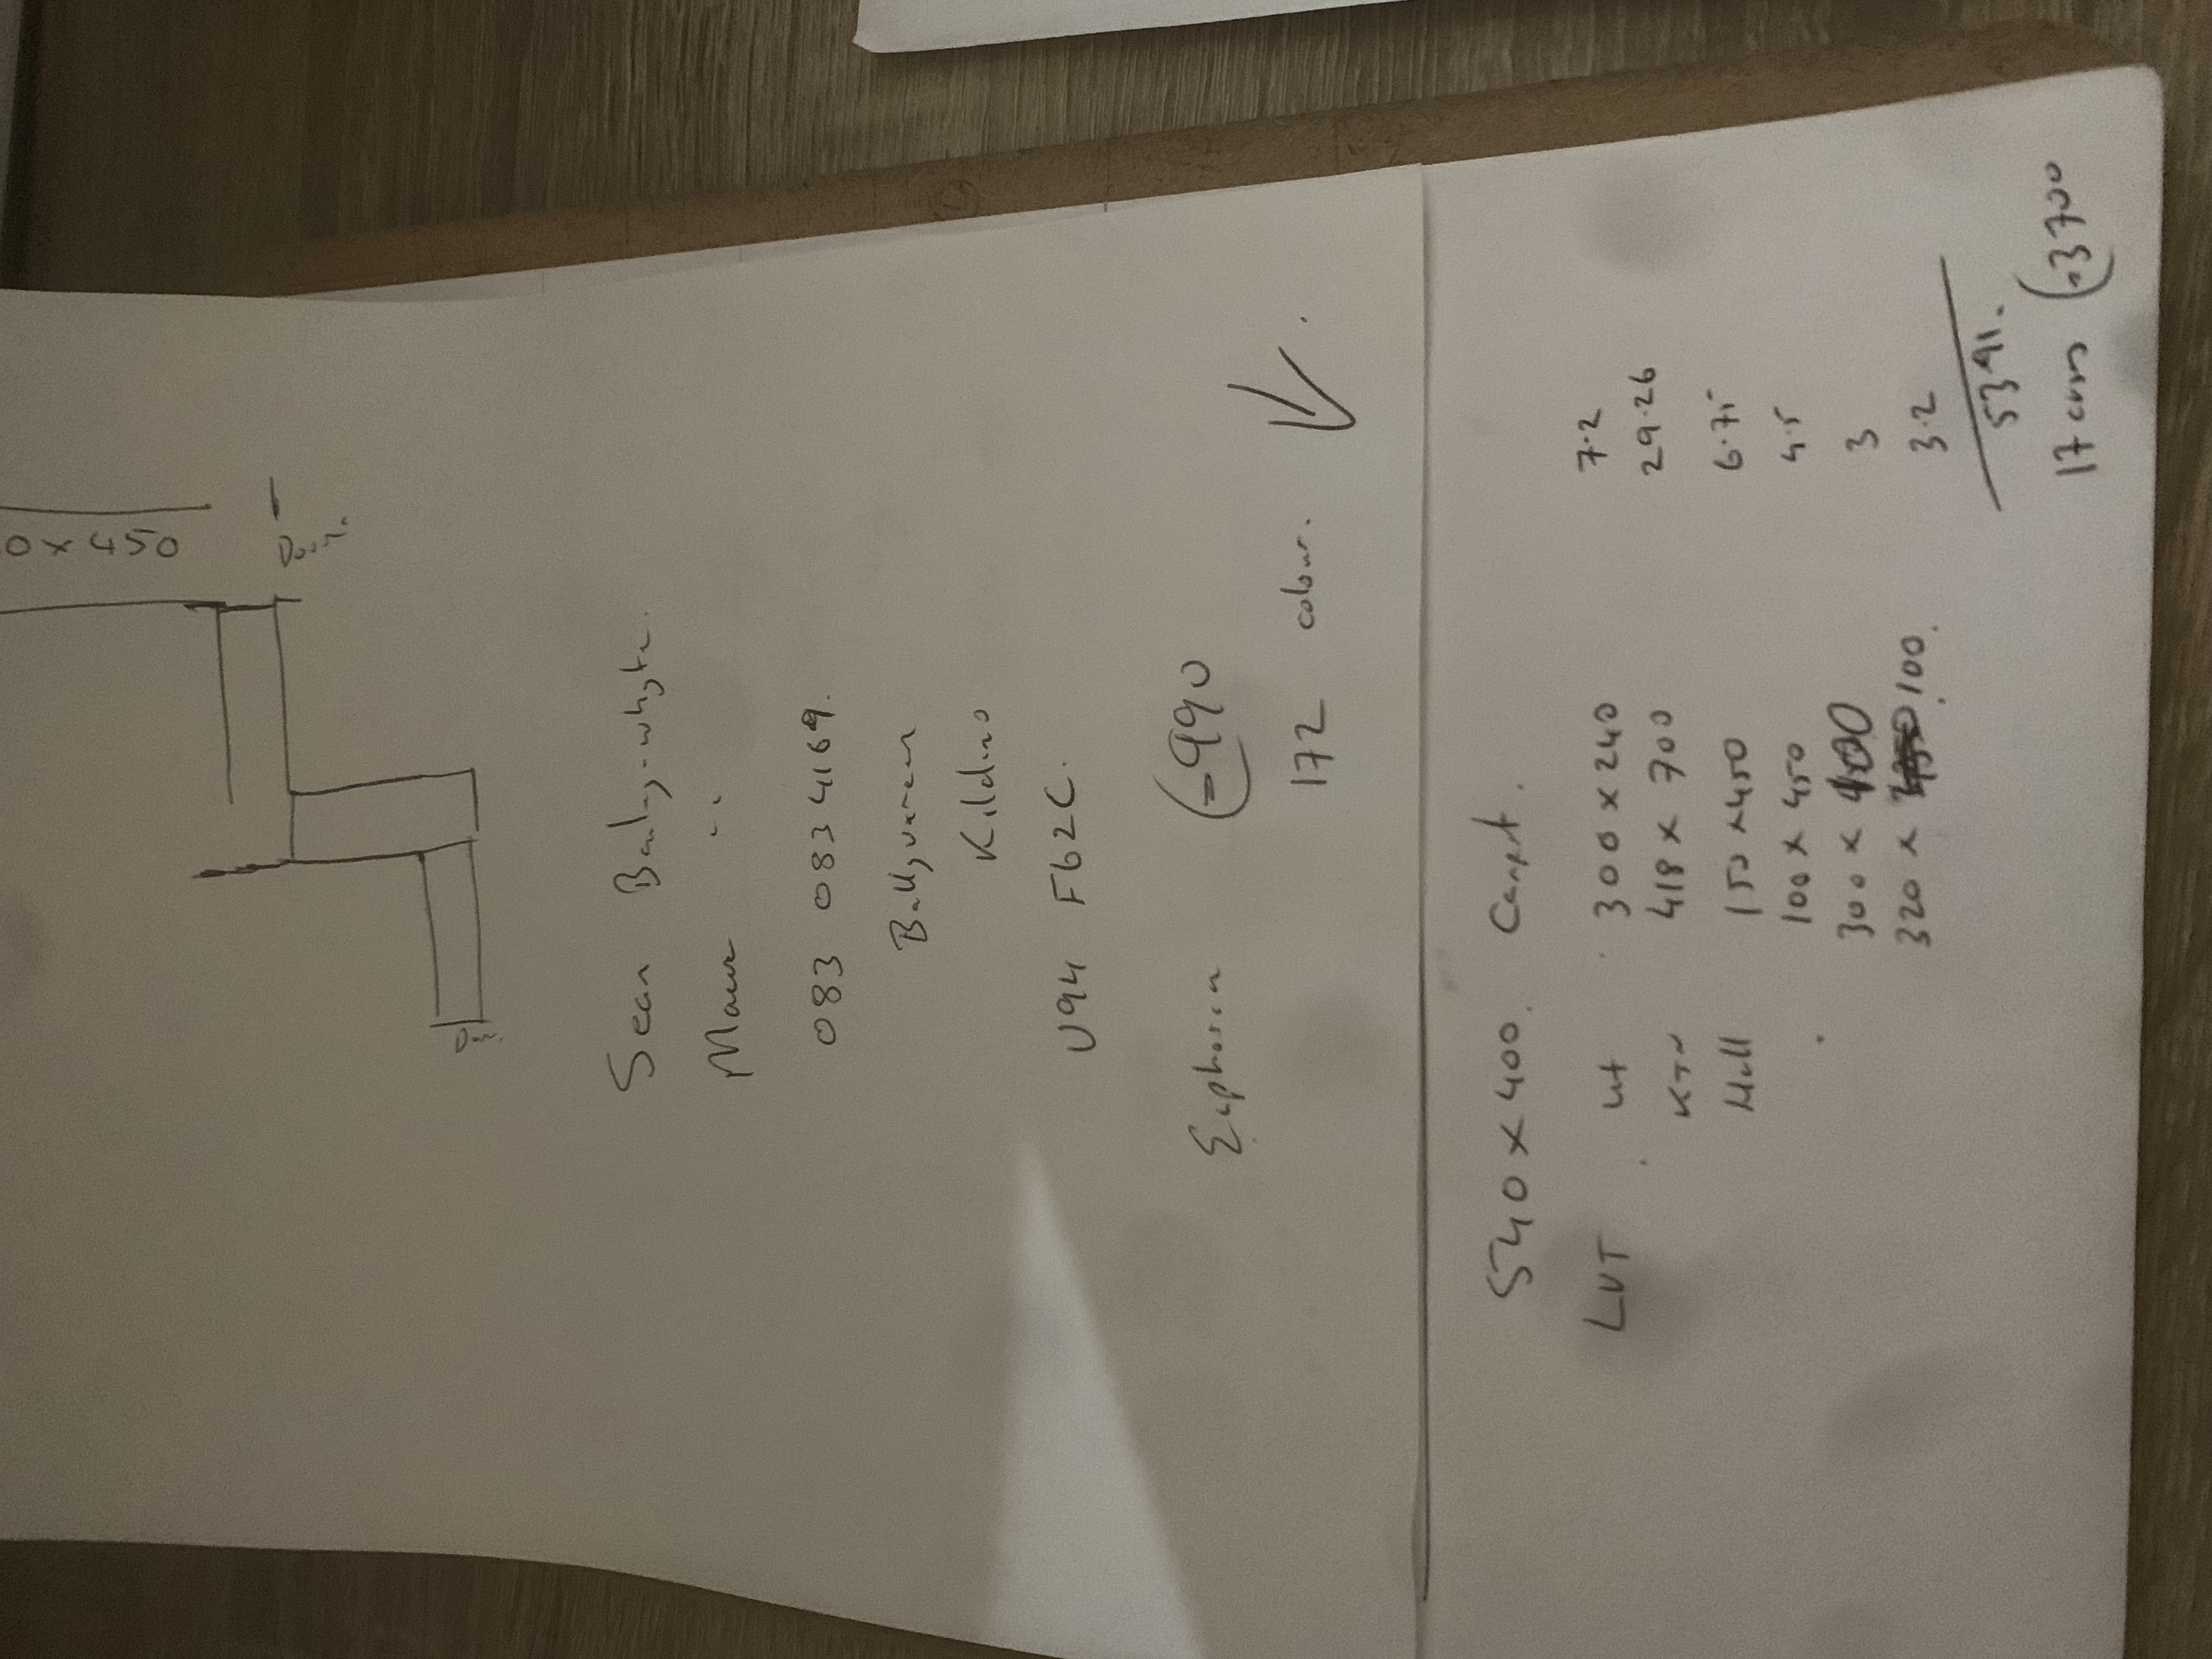 0 x 450
Door
Sean Bailey-Whyte.
083 083 4169.
Kildino
U94 F62C.
Euphoria €990
172 colour.
540 x 400. Carpet.
LVT ut 300 x 240 7.2
KTN 418 x 700 29.26
Hall 150 x 450 6.75
100 x 450 4.5
300 x 100 3
320 x 100. 3.2
53.91.
17 €3700